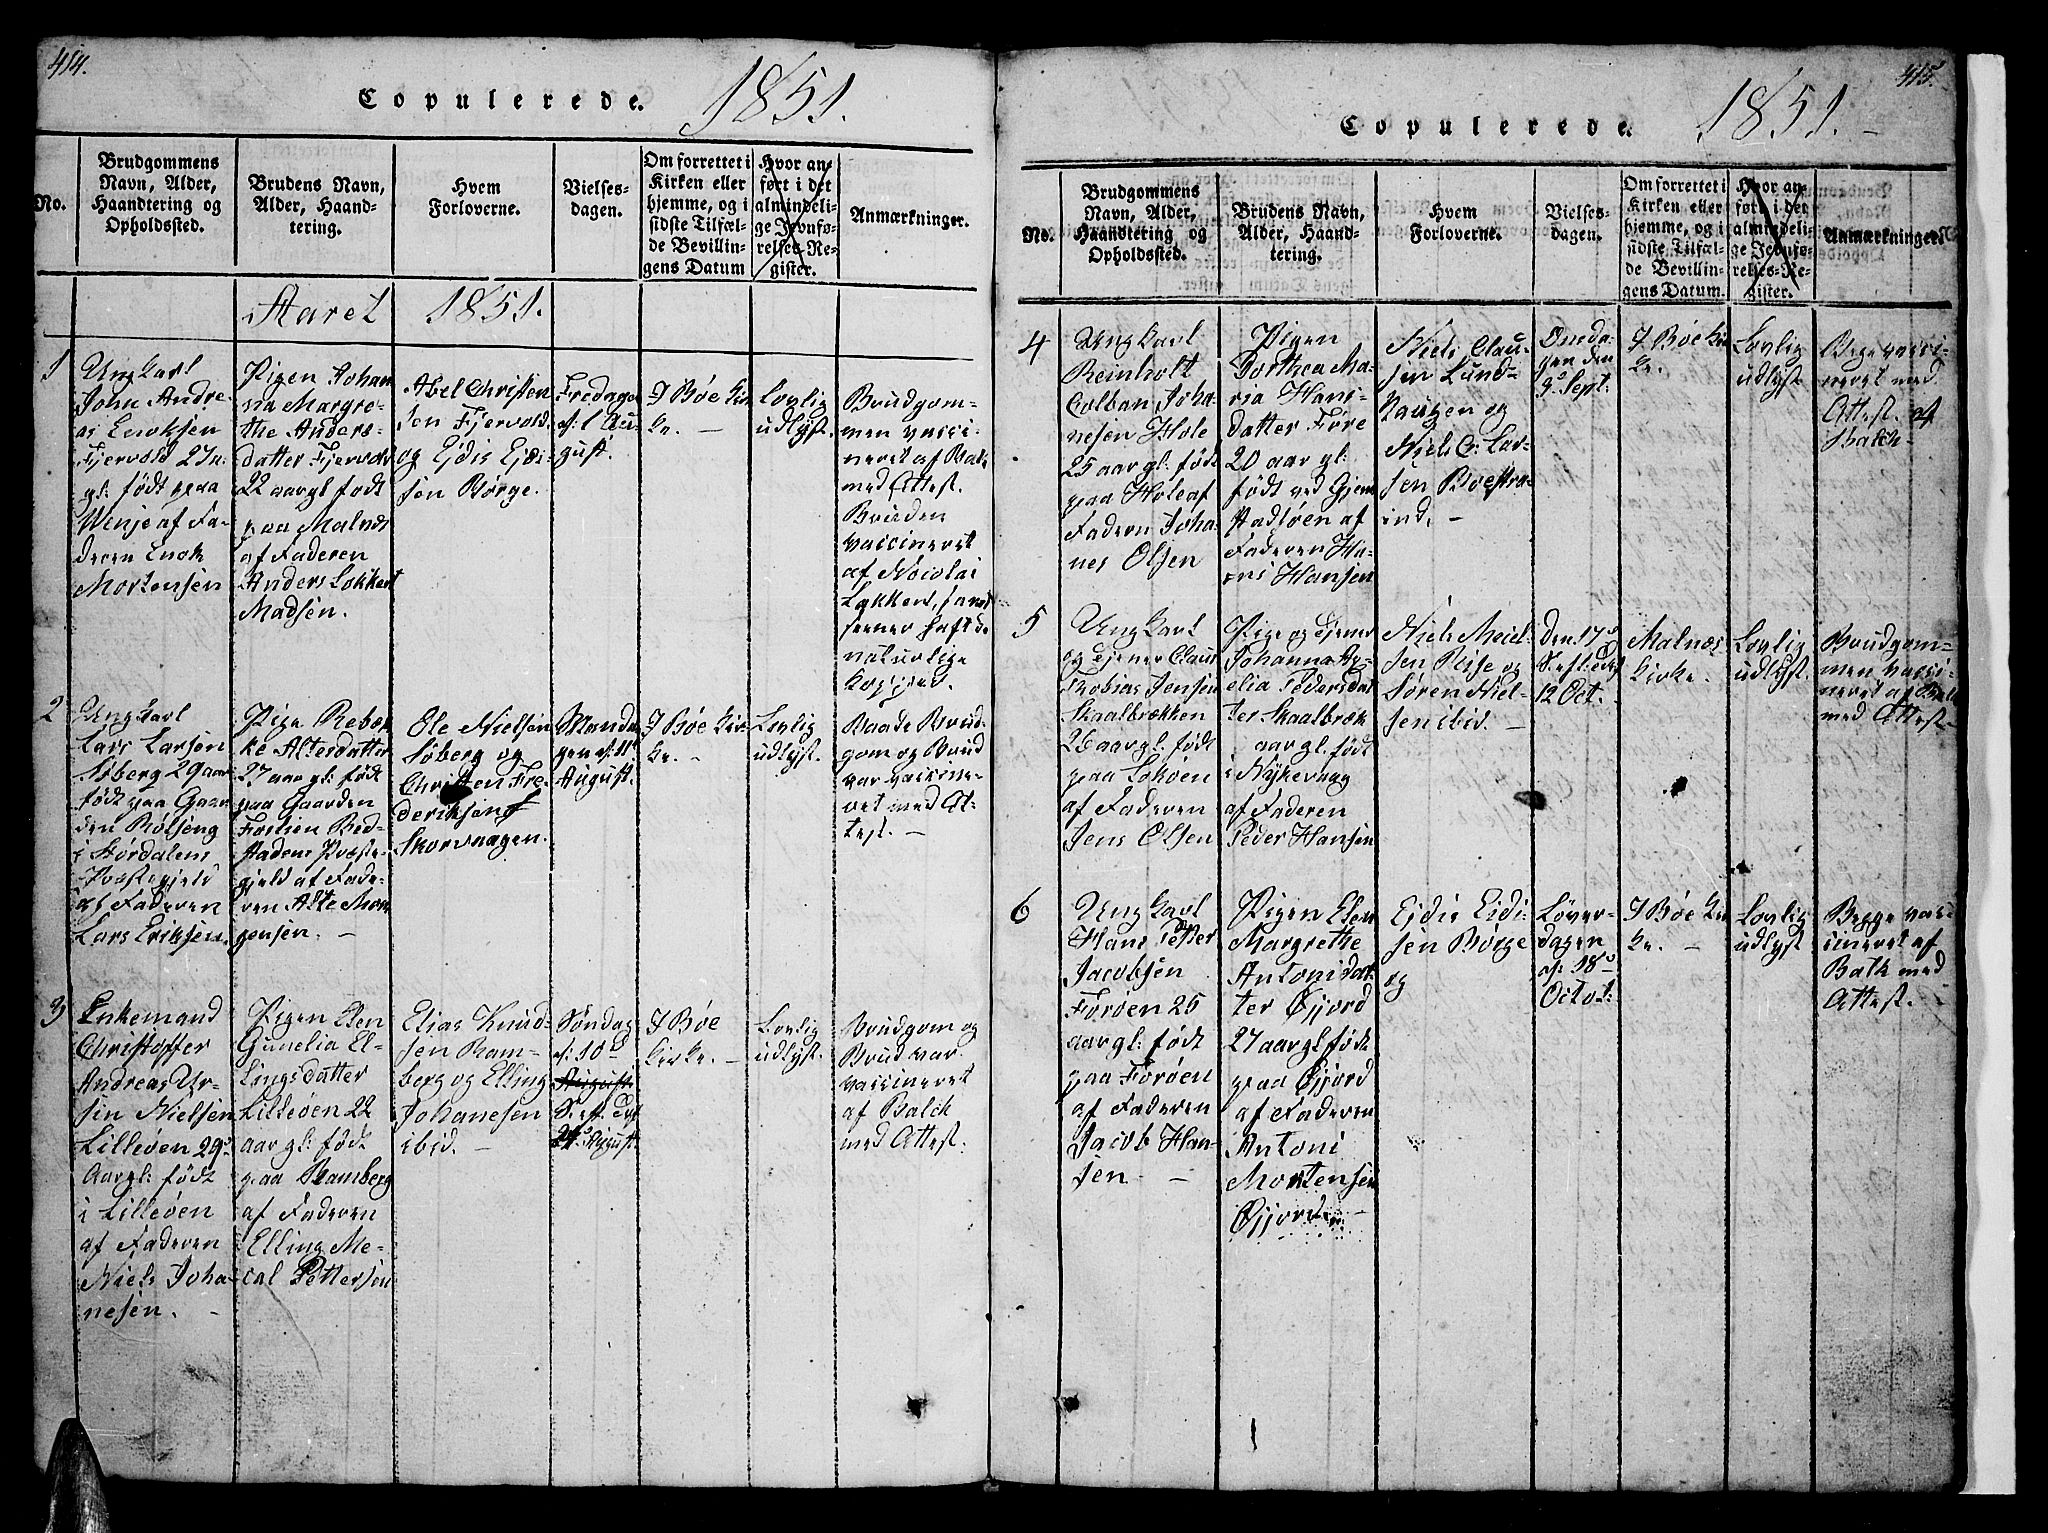 414.
Copulerede. 1851.
No.
Brudgommens
Navn, Alder,
Haandtering og
Opholdssted.
Brudens Navn,
Alder, Haand-
tering.
Hvem
Forloverne.
Vielses-
dagen.
Om forrettet i
Kirken eller
hjemme, og i
sidste Tilfæl-
de Bevillin-
gens Datum
Hvor an-
ført i det
almindeli-
ge Jevnfø-
relses-Re-
gister.
Anmærkninger.
Aaret 1851.
1
Ungkarl
John Andre-
as Enoksen
Fjervold
gl: født paa
Wenje af Fa-
deren Enok
Mortensen
Pigen Johan
na Margre-
the Anders-
datter Fjervold
22 aar gl født
paa Malnæs
af Faderen
Anders Lokkert
Madsen.
Abel Christen
sen Fjervold
og Ejdis Ejdi-
sen Børge.
Fredagen
d: 1 Au-
gust.
I Bøe Kir
ke. —
Lovlig
udlyst.
Brudgom-
men vacci-
neret af Balk
med Attest.
Bruden
vaccineret
af Nicolai
Lakken, samt
seener haft de
naturlige
Kopper.
2
Ungkarl
Lars Larsen
Søberg 29 aar
født paa Gaar
den
i Størdalens
Præstegjeld
af Faderen
Lars Eriksen.
Pige Rebæk
ke Altersdatter
27 aar gl: født
paa Gaarden
i
Præste-
gjeld af Fade-
ren Alte Mon
sen. —
Ole Nielsen
Søberg og
Christen Fre
deriksen
Skorvaagen.
Manda
gen d: 11te
August.
I Bøe Kir-
ke. —
Lovlig
udlyst.
Baade Brud-
gom og Brud
var vaccine-
ret med At-
test. —
3
Enkemand
Christopher
Andreas Ur-
sin Nielsen
Lilleøen 29
Aar gl: født
i Lilleøen
af Faderen
Niels Joha-
nesen. —
Pigen Elen
Gunelia El-
lingsdatter
Lilleøen 22
aar gl: født
paa Ramberg
af Faderen
Elling Me-
cal Pettersen
Elias Knud-
sen Ram-
berg og Elling
Johanesen
ibid. —
Søndag
d: 10d
August
24 August
I Bøe
Kirke. —
Lovlig
udlyst.
Brudgom og
Brud var
vaccineret
af Balck
med Attest.
415.
Copulerede. 1851. —
No.
Brudgommens
Navn, Alder,
Haandtering og
Opholdssted.
Brudens Navn,
Alder, Haand-
tering.
Hvem
Forloverne.
Vielses-
dagen.
Om forrettet i
Kirken eller
hjemme, og i
sidste Tilfæl-
de Bevillin-
gens Datum
Hvor an-
ført i det
almindeli-
ge Jevnfø-
relses-Re-
gister.
Anmærkninger.
4
Ungkarl
Reinholt
Colban Joha
nesen Hole
25 aar gl: født
paa Hole af
Faderen Joha-
nes Olsen
Pigen
Dorthea Ma-
ria Hans-
datter Føre
20 aar gl:
født ved Gjem
stadløen af
Faderen Ha-
ns Hansen
Niels Clau-
sen Lund-
Kaugen og
Niels C: Lar-
sen Bøestra-
ind. —
Onsda-
gen den
Sept:
I Bøe Kir
ke.
Lovlig
udlyst
Begge vacci-
neret med
Attest af
Balck.
5
Ungkarl
og tjener Claus
Tobias Jensen
Skaalbrækken
26 aar gl: født
paa
af Faderen
Jens Olsen
Pige og tjener
Johanna
elia Pedersdat
ter Skaalbræk
aar gl: født
i Nykevaag
af Faderen
Peder Hansen
Niels Niel-
sen Reise og
Søren Niel-
sen ibid. —
Den 17de
12 Oct. —
Malnæs
Kirke. —
Lovlig
udlyst. —
Brudgom-
men vacci-
neret af Balk
med Attest. —
6
Ungkarl
Hans Petter
Jacobsen
Forøen 25
aar gl: født
paa Forøen
af Faderen
Jacob Han-
sen. —
Pigen Elen
Margrethe
Antonidat
ter Øijord
27 aar gl født
paa Øijord
af Faderen
Antoni
Mortensen
Øijord. —
Ejdis Eidi-
sen Børge
og
Løver-
dagen
d: 18de
Octo:
I Bøe Kir
ke. —
Lovlig
udlyst
Begge vac
cineret af
Balk med
Attest.